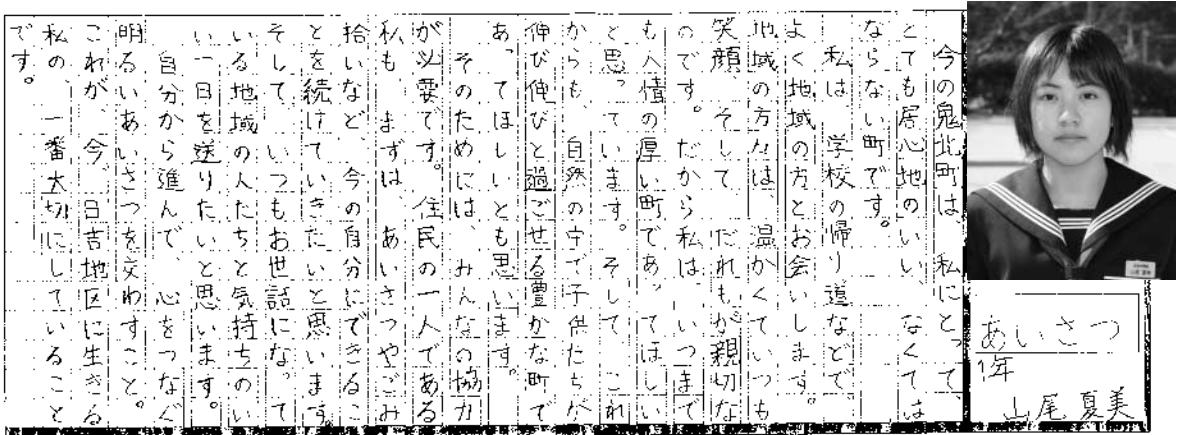 あいさつ
1年
山尾夏美
今の鬼北町は、私にとって、
とても居心地のいい、なくては
ならない町です。
私は、学校の帰り道などで
よく地域の方とお会いします。
地域の方々は、温かくていつも
笑顔、そして、だれもが親切な
のです。だから私は、いつまで
も人情の厚い町であってほしい
と思っています。そして、これ
からも、自然の中で子供たちが
伸び伸びと過ごせる豊かな町で
あってほしいとも思います。
そのためには、みんなの協力
が必要です。住民の一人である
私も、まずは、あいさつやごみ
拾いなど、今の自分にできるこ
とを続けていきたいと思います。
そして、いつもお世話になって
いる地域の人たちと気持ちのい
い一日を送りたいと思います。
自分から進んで、心をつなぐ
明るいあいさつを交わすこと。
これが、今、日吉地区に生きる
私の、一番大切にしていること
です。